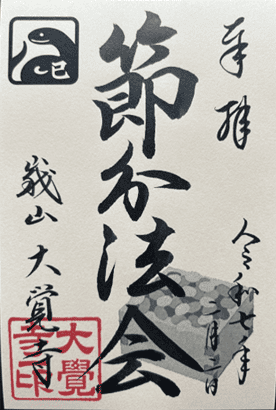 奉拝
令和七年二月二日
節分法会
巳
嵯山 大覺寺
大覺寺印